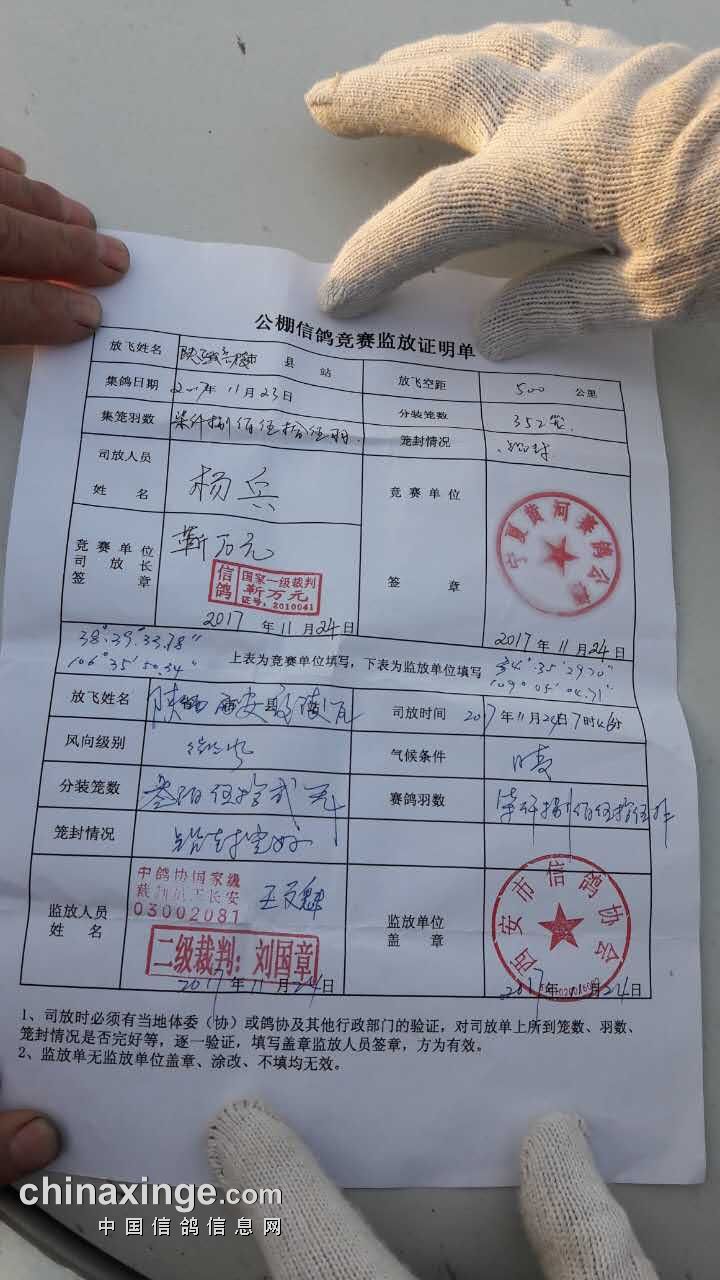 公棚信鸽竞赛监放证明单
放飞姓名 县 站 放飞空距 500 公里
集鸽日期 2017年11月23日 分装笼数 352笼
集笼羽数 柒仟捌佰伍拾伍羽 笼封情况
司放人员 姓名 杨兵 竞赛单位 签章
宁夏黄河赛鸽公棚
竞赛单位 司放长 签章 靳万元
信鸽 国家一级裁判 靳万元 证号:2010041
2017年11月24日 2017年11月24日
38°.39'.33.78"
106°35'50.34"
上表为竞赛单位填写，下表为监放单位填写
34°.35'29.70"
109°05'04.71"
放飞姓名 司放时间 2017年11月24日7时46分
风向级别 微风 气候条件
分装笼数 叁佰伍拾贰 赛鸽羽数 柒仟捌佰伍拾伍
笼封情况 铅封完好
监放人员 姓名
中鸽协国家级
03002081
二级裁判：刘国章
2017年11月24日
监放单位 盖章
西安市信鸽协会
2017年11月24日
1、司放时必须有当地体委（协）或鸽协及其他行政部门的验证，对司放单上所到笼数、羽数、
笼封情况是否完好等，逐一验证，填写盖章监放人员签章，方为有效。
2、监放单无监放单位盖章、涂改、不填均无效。
chinaxinge.com
中国信鸽信息网